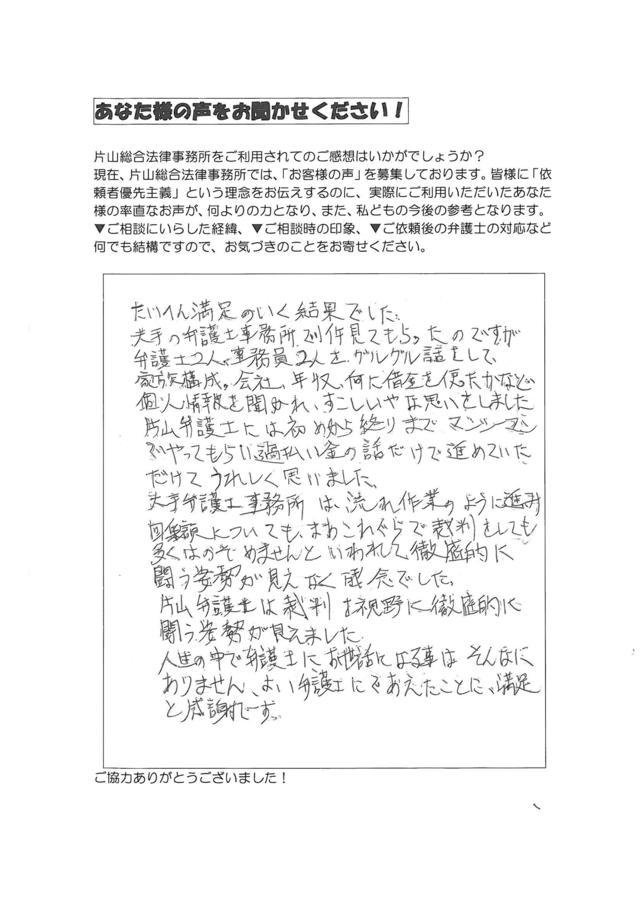 あなた様の声をお聞かせください！
片山総合法律事務所をご利用されてのご感想はいかがでしょうか？
現在、片山総合法律事務所では、「お客様の声」を募集しております。皆様に「依
頼者優先主義」という理念をお伝えするのに、実際にご利用いただいたあなた
様の率直なお声が、何よりの力となり、また、私どもの今後の参考となります。
▼ご相談にいらした経緯、▼ご相談時の印象、▼ご依頼後の弁護士の対応など
何でも結構ですので、お気づきのことをお寄せください。
たいへん満足のいく結果でした。
大手の弁護士事務所で別件見てもらったのですが
弁護士2人、事務員2人と、グルグル話をして、
家族構成。会社、年収、何に借金を使たかなど
個人情報を聞かれ、すこしいやな思いをしました
片山弁護士には初めから終りまでマンツーマン
でやってもらい、過払い金の話だけで進めていた
だけてうれしく思いました。
大手弁護士事務所は、流れ作業のように進み
回収額についても、まあこれぐらいで裁判をしても
多くはのぞめませんといわれて、徹底的に
闘う姿勢が見えなく残念でした。
片山弁護士は裁判も視野に徹底的に
闘う姿勢が見えました。
人生の中で弁護士にお世話になる事はそんなに
ありません、よい弁護士にであえたことに、満足
と感謝です。
ご協力ありがとうございました！